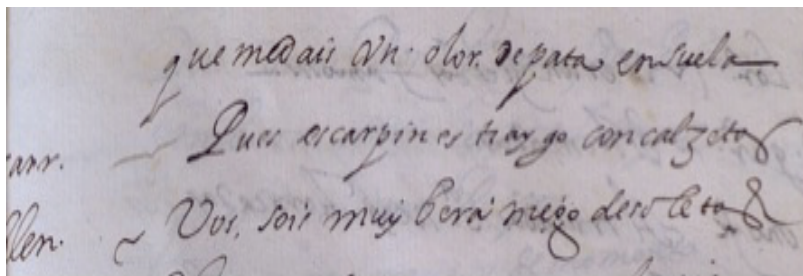 que me dais Un. olor. de pata en suela
carr. Pues escarpines traygo con calzetas
llen. Vos, sois muy bera migo deso